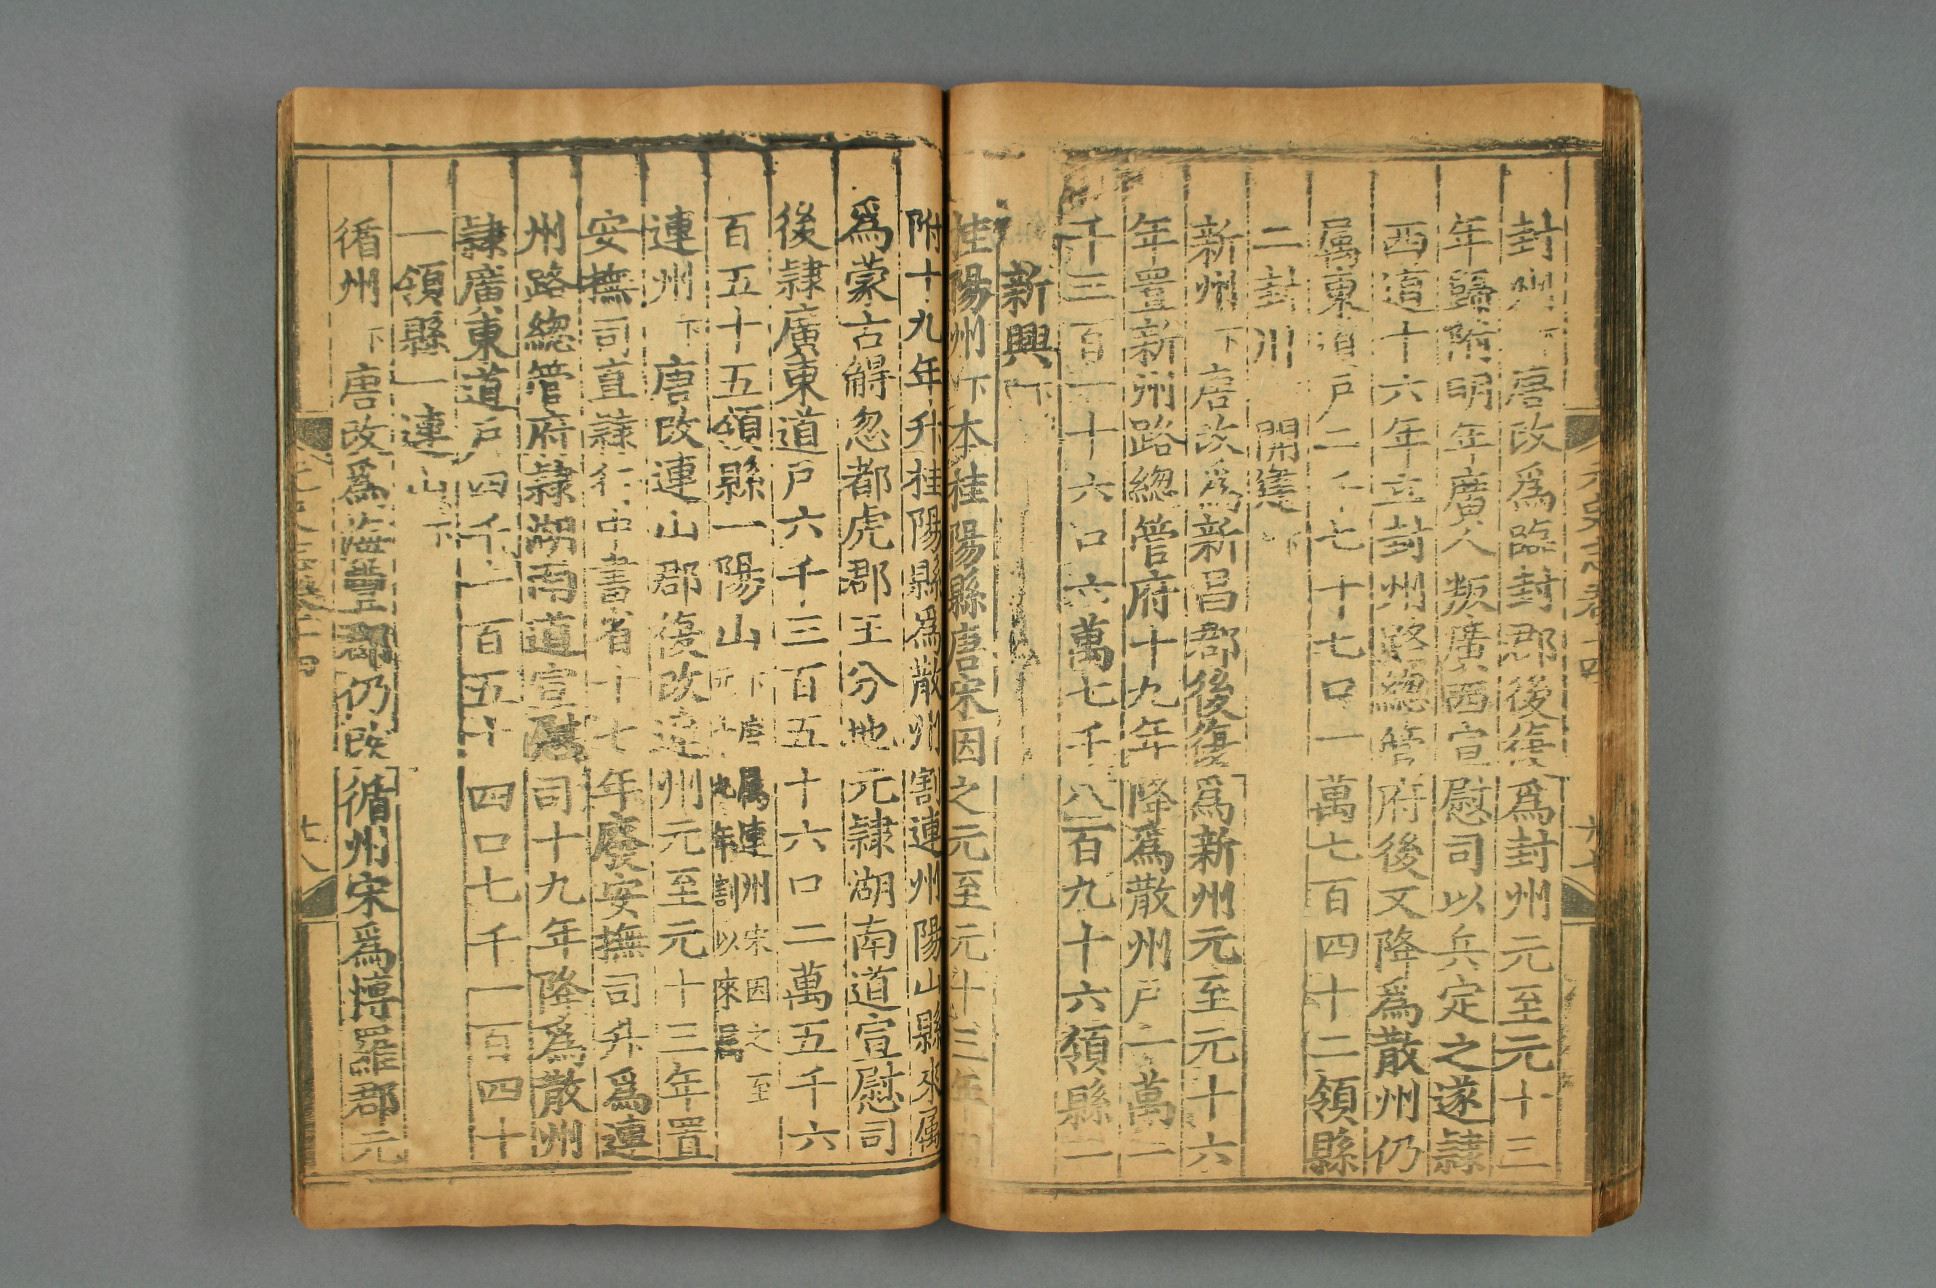 封州下唐改爲臨封郡後復爲封州元至元十三
年歸附明年廣人叛廣西宣慰司以兵定之遂隸
西道十六年立封州路總管府後又降爲散州仍
屬東道戶二千七十七口一萬七百四十二領縣
二封川 開建下
新州下唐改爲新昌郡後復爲新州元至元十六
年置新州路總管府十九年降爲散州戶一萬一
千三百一十六口六萬七千八百九十六領縣一
新興下
桂陽州下本桂陽縣唐宋因之元至元十三年內
附十九年升桂陽縣爲散州割連州陽山縣來屬
爲蒙古䚟忽都虎郡王分地元隸湖南道宣慰司
後隸廣東道戶六千三百五十六口二萬五千六
百五十五領縣一陽山下唐屬連州宋因之至元十九年割以來屬
連州下唐改連山郡復改連州元至元十三年置
安撫司直隸行中書省十七年廢安撫司升爲連
州路總管府隸湖南道宣慰司十九年降爲散州
隸廣東道戶四千一百五十四口七千一百四十
一領縣一連山下
循州下唐改爲海豐郡仍改循州宋爲博羅郡元
元史志卷十四
十七
元史志卷十四
十八